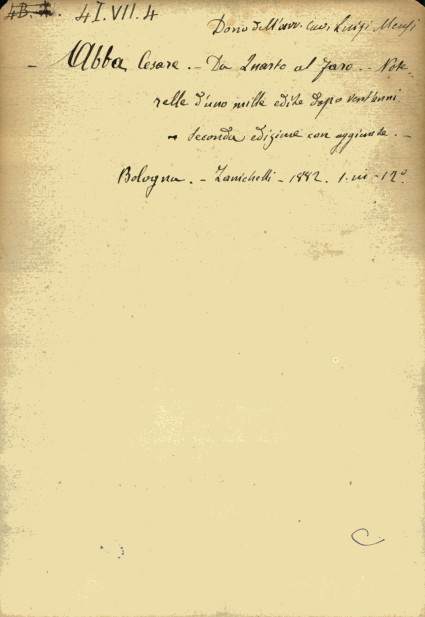 4I.VII.4
Dono dell'avv. Cav. Luigi
– Abba Cesare. – Da Quarto al Faro. – Note-
relle d'uno mille edite dopo vent'anni
– Seconda edizione con aggiunte. –
Bologna. – Zanichelli – 1882. 1. in – 12°.
C